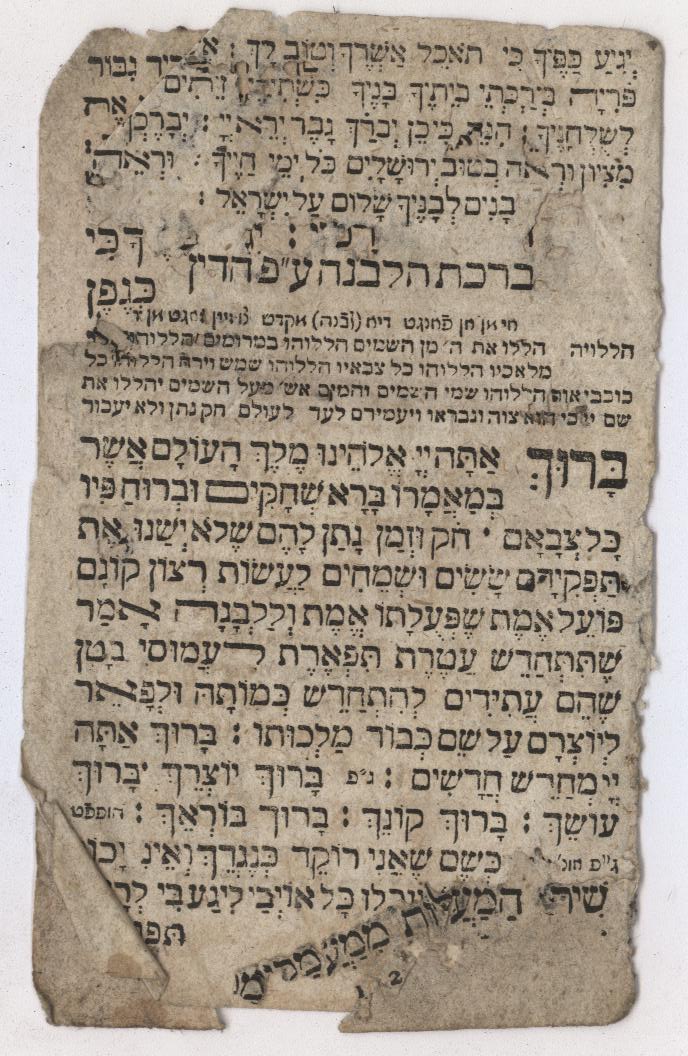 יְגִיעַ כַּפֶּיךָ כִּי תֹאכֵל אַשְׁרֶךָ וְטוֹב לָךְ : גבור
פֹּרִיָּה בְּיַרְכְּתֵי בֵיתֶךָ בָּנֶיךָ כִּשְׁתִילֵי זֵיתִים
לְשֻׁלְחָנֶךָ : הִנֵּה כִי כֵן יְבֹרַךְ גָּבֶר יְרֵא יְיָ : יְבָרֶכְךָ את
מִצִּיוֹן וּרְאֵה בְּטוּב יְרוּשָׁלָיִם כֹּל יְמֵי חַיֶּיךָ : וּרְאֵה
בָנִים לְבָנֶיךָ שָׁלוֹם עַל יִשְׂרָאֵל :
כי
ברכת הלבנה ע״פ הדין
כגפן
הללויה הללו את ה׳ מן השמים הללוהו במרומים הללוהו כל
מלאכיו הללוהו כל צבאיו הללוהו שמש וירח הללוהו כל
כוכבי אור הללוהו שמי השמים והמים אש׳ מעל השמים יהללו את
שם כי הוא צוה ונבראו ויעמידם לעד לעולם חק נתן ולא יעבור
בָּרוּךְ אַתָּה יְיָ אֱלֹהֵינוּ מֶלֶךְ הָעוֹלָם אֲשֶׁר
בְּמַאֲמָרוֹ בָּרָא שְׁחָקִים וּבְרוּחַ פִּיו
כָּל צְבָאָם • חֹק וּזְמַן נָתַן לָהֶם שֶׁלֹּא יְשַׁנּוּ אֶת
תַּפְקִידָם שָׂשִׂים וּשְׂמֵחִים לַעֲשׂוֹת רְצוֹן קוֹנָם
פּוֹעֵל אֱמֶת שֶׁפְּעֻלָּתוֹ אֱמֶת וְלַלְּבָנָה אָמַר
שֶׁתִּתְחַדֵּשׁ עֲטֶרֶת תִּפְאֶרֶת לַעֲמוּסֵי בָטֶן
שֶׁהֵם עֲתִידִים לְהִתְחַדֵּשׁ כְּמוֹתָהּ וּלְפָאֵר
לְיוֹצְרָם עַל שֵׁם כְּבוֹד מַלְכוּתוֹ : בָּרוּךְ אַתָּה
יְיָ מְחַדֵּשׁ חֳדָשִׁים : ג״פ בָּרוּךְ יוֹצְרֵךְ בָּרוּךְ
עוֹשֵׂךְ : בָּרוּךְ קוֹנֵךְ : בָּרוּךְ בּוֹרְאֵךְ : הופפט
ג״פ כְּשֵׁם שֶׁאֲנִי רוֹקֵד כְּנֶגְדֵּךְ וְאֵינִי
כָּל אוֹיְבַי לִיגַע בִּי
שִׁיר הַמַּעֲלוֹת מִמַּעֲמַקִּים
12